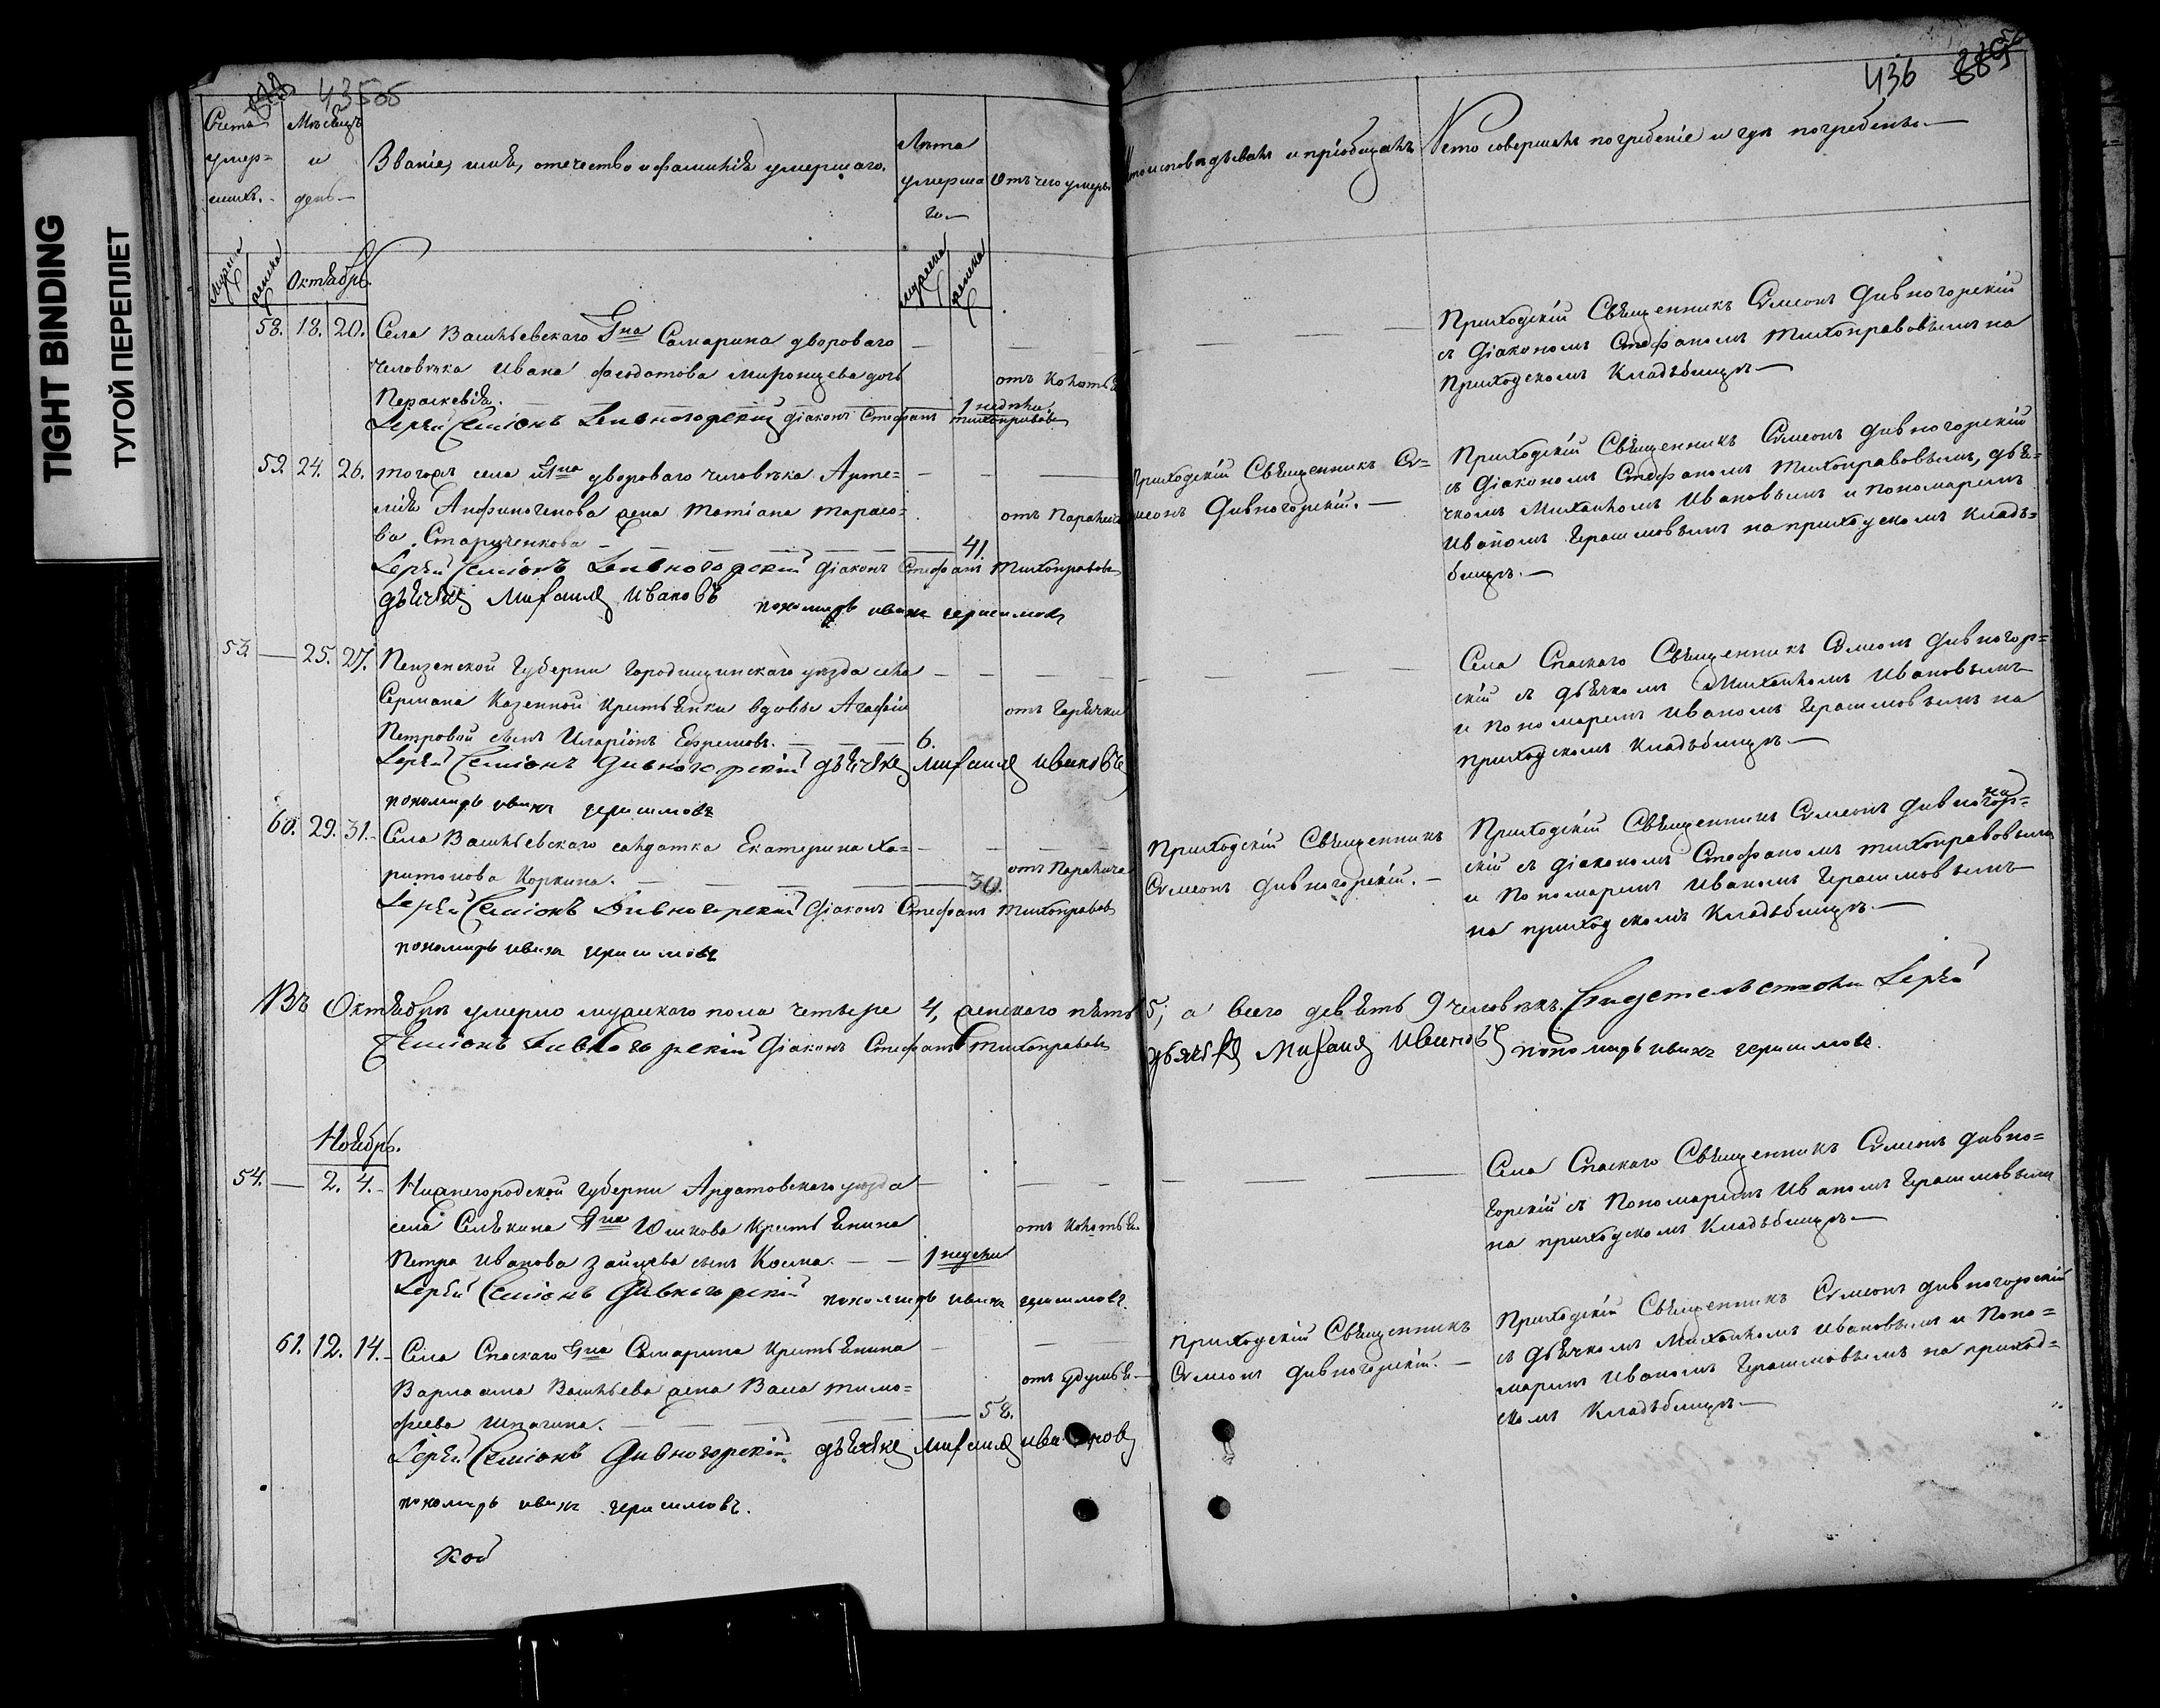 TIGHT BINDING
ТУГОЙ ПЕРЕПЛЕТ
435
436
Счетъ умер=шихъ.
Мѣсяцъ и день
Званіе, имя, отечество и фамилія умершаго.
Лѣта умершаго
Отъ чего умеръ
исповѣдывалъ и пріобщалъ
Кто совершалъ погребеніе и гдѣ погребенъ.
Мужска
женска
Октябрь.
мужеска
женска
58. 18. 20. Села Васильевскаго Гна Самарина двороваго
человѣка Ивана Феодотова Миронцева дочь
Параскевія. 1 недѣли.
отъ Колотья
Іерей Симеонъ Дивногорскій Діаконъ Стефанъ Тихонравовъ
Приходскій Священникъ Симеонъ Дивногорскій
съ Діакономъ Стефаномъ Тихонравовымъ на
Приходскомъ Кладбищѣ
59. 24. 26. Тогожъ села Гна двороваго человѣка Арте=
мія Анфиногенова жена Татіана Тарасо=
ва Старченкова 41.
отъ Паралича
Іерей Симеонъ Дивногорскій Діаконъ Стефанъ Тихонравовъ
дьячекъ Михаилъ Ивановъ пономарь иванъ герасимовъ
Приходскій Священникъ Си=
меонъ Дивногорскій.
Приходскій Священникъ Симеонъ Дивногорскій
съ Діакономъ Стефаномъ Тихонравовымъ, дья=
чкомъ Михаиломъ Ивановымъ и Пономаремъ
Иваномъ Герасимовымъ на приходскомъ клад=
бищѣ.
53. 25. 27. Пензенской Губерніи Городищинскаго уѣзда села
Сермана Казенной Крестьянки вдовы Агафіи
Петровой сынъ Иларіонъ Ефремовъ. 6.
отъ Горячки
Іерей Симеонъ Дивногорскій дьячекъ Михаилъ Ивановъ
пономарь иванъ герасимовъ
Села Спаскаго Священникъ Симеонъ Дивногор=
скій съ дьячкомъ Михаиломъ Ивановымъ
и Пономаремъ Иваномъ Герасимовымъ на
приходскомъ Кладбищѣ
60. 29. 31. Села Васильевскаго салдатка Екатерина Ха=
ритонова Коркина. 30.
отъ Паралича
Іерей Симеонъ Дивногорскій Діаконъ Стефанъ Тихонравовъ
пономарь иванъ герасимовъ
Приходскій Священникъ
Симеонъ Дивногорскій.
Приходскій Священникъ Симеонъ Дивногор=
скій съ діакономъ Стефаномъ Тихонравовымъ
и Пономаремъ Иваномъ Герасимовымъ
на приходскомъ Кладбищѣ.
Въ Октябрѣ умерло мужскаго пола четыре 4, женскаго пять 5; а всего девять 9 человѣкъ. Свидетельствовали Іерей
Симеонъ Дивногорскій Діаконъ Стефанъ Тихонравовъ дьячекъ Михаилъ Ивановъ пономарь иванъ герасимовъ.
Ноябрь.
54. 2. 4. Нижегородской Губерніи Ардатовскаго уѣзда
села Гна Юшкова Крестьянина
Петра Иванова Зайцева сынъ Косма. 1 недели
отъ Колотья.
Іерей Симеонъ Дивногорскій пономарь иванъ герасимовъ.
Села Спаскаго Священникъ Симеонъ Дивно=
горскій съ Пономаремъ Иваномъ Герасимовымъ
на приходскомъ Кладбищѣ
61. 12. 14. Села Спаскаго Гна Самарина Крестьянина
Варлаама Васильева жена Васа Тимо=
феева Шпагина. 58.
отъ Удушья
Іерей Симеонъ Дивногорскій дьячекъ Михаилъ Ивановъ
пономарь иванъ герасимовъ.
Приходскій Священникъ
Симеонъ Дивногорскій.
Приходскій Священникъ Симеонъ Дивногорскій
съ дьячкомъ Михаиломъ Ивановымъ и Поно=
маремъ Иваномъ Герасимовымъ на приход=
скомъ Кладбищѣ
кой